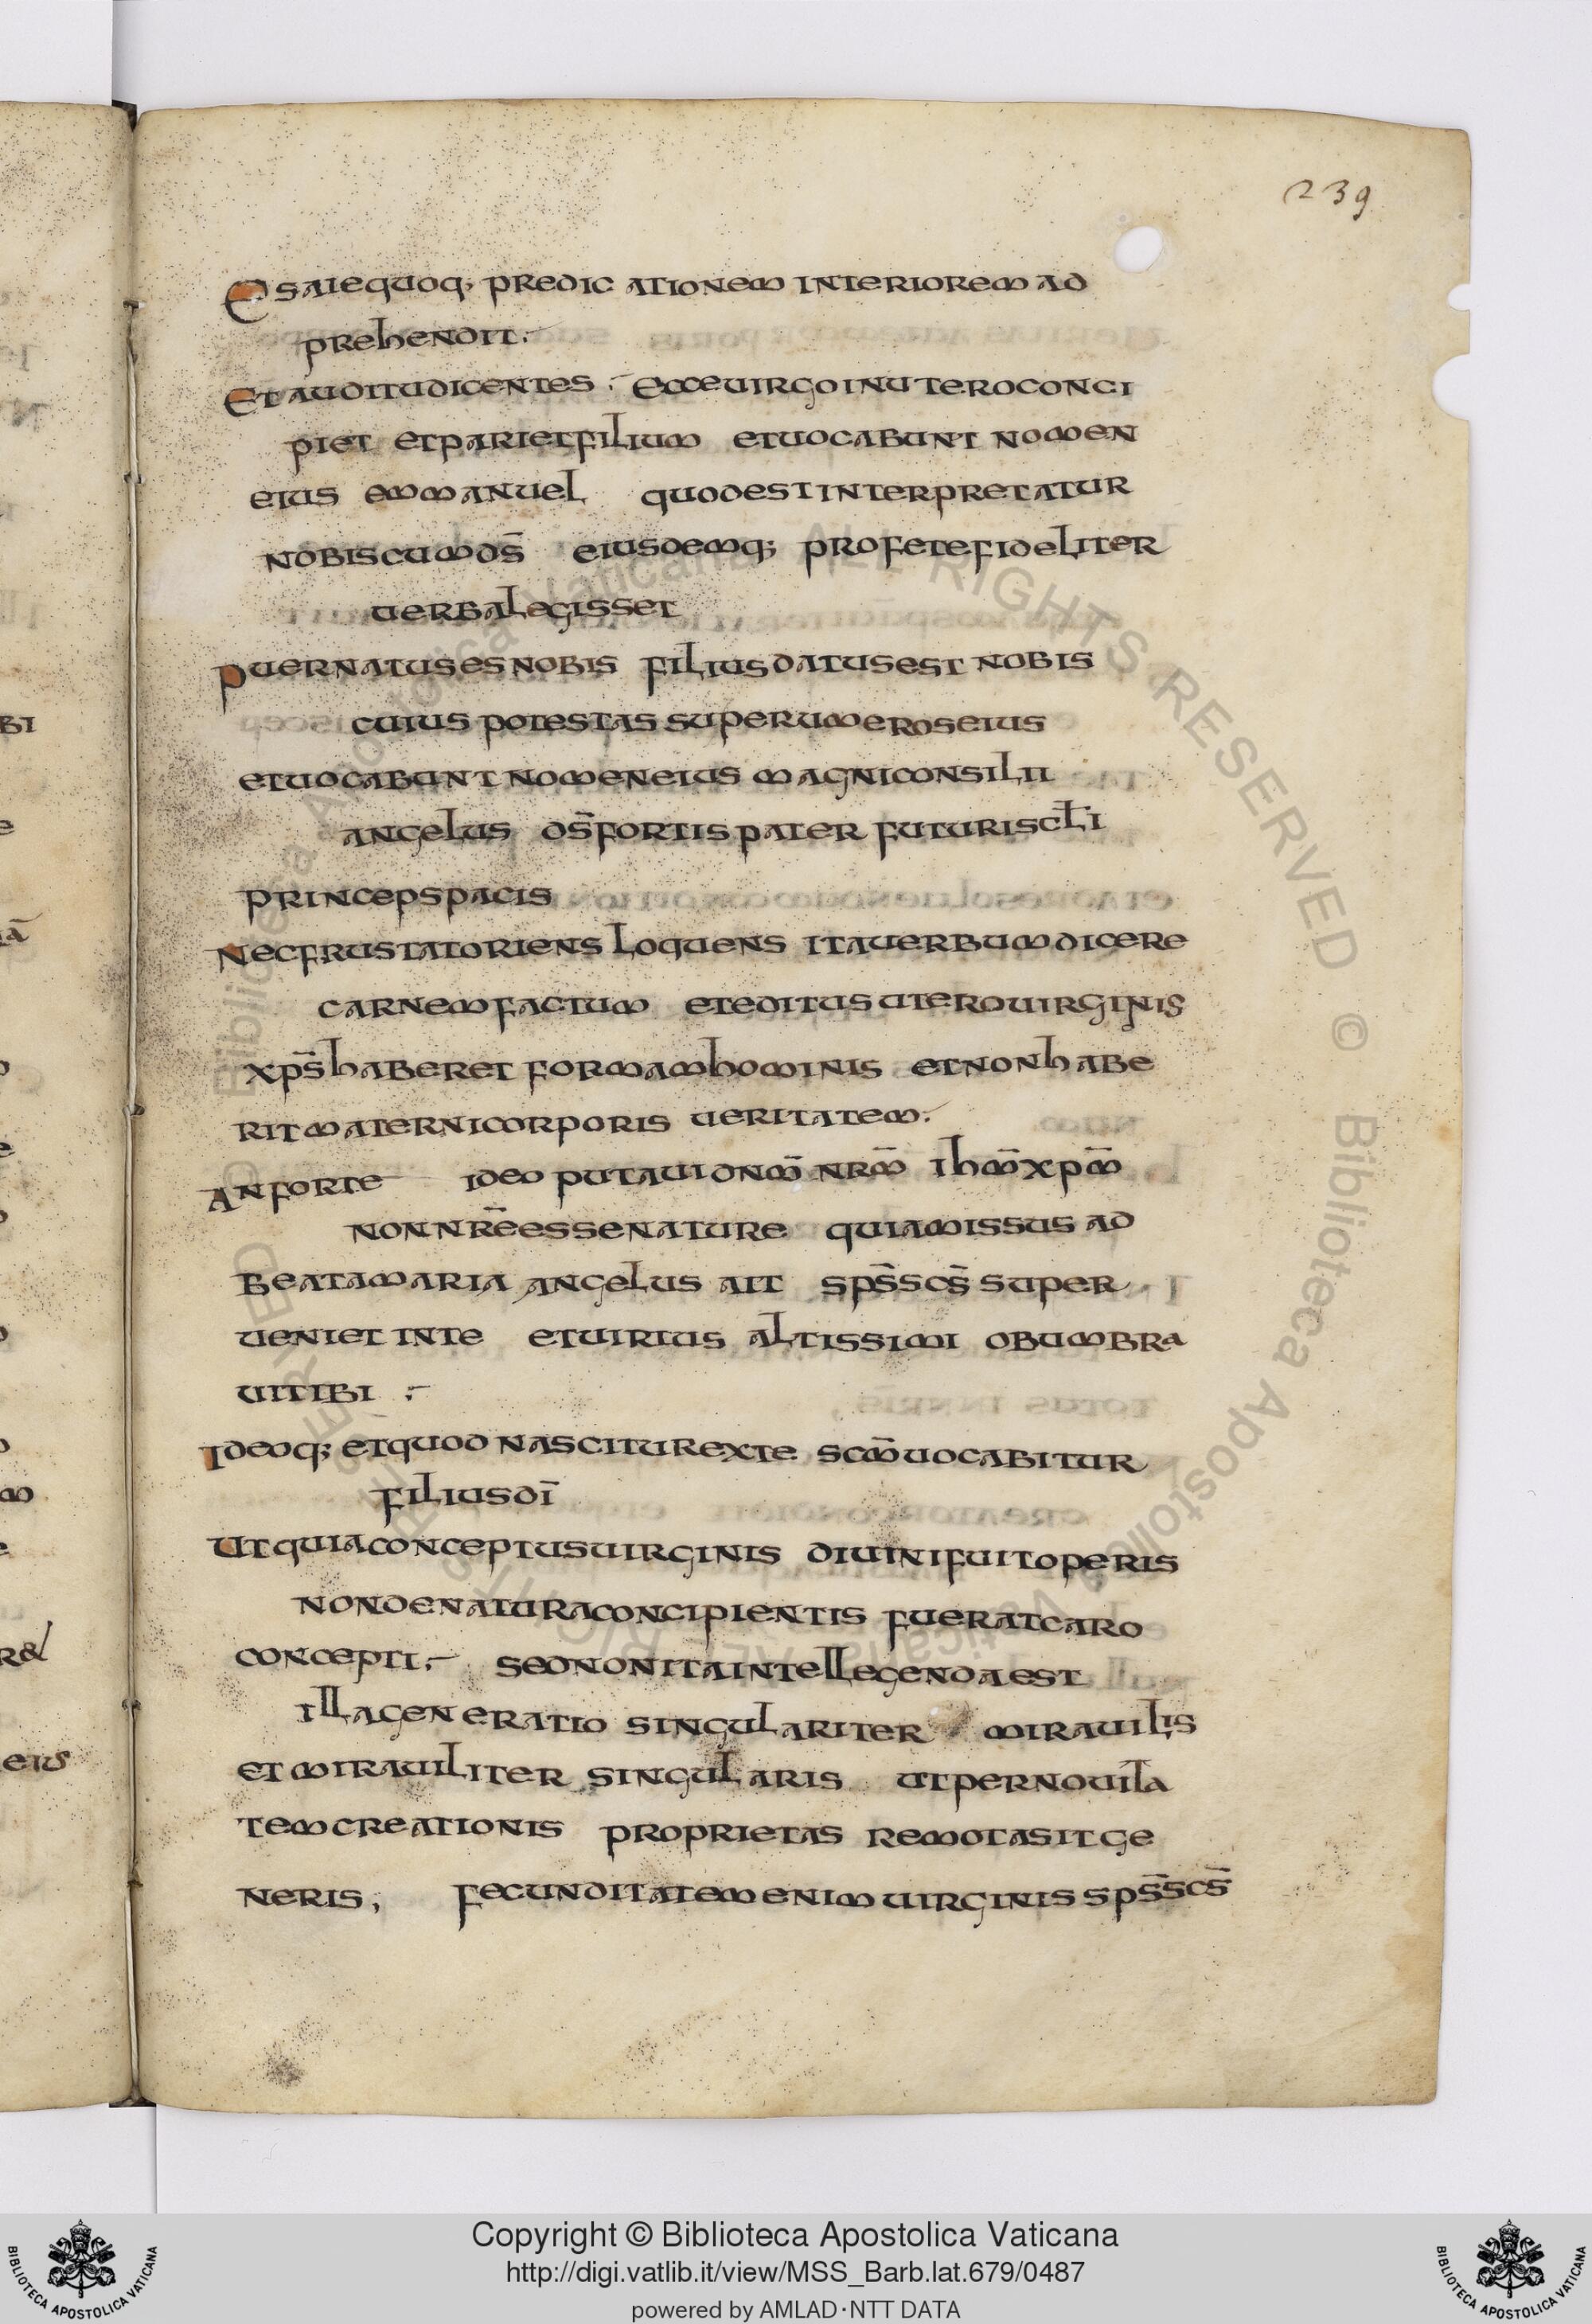 239
Esaie quoq; predicationem interiorem ad
prehendit.
Et auditu dicentes. Ecce uirgo in utero conci
piet et pariet filium etuocabunt nomen
eius emmanuel quodest interpretatur
nobiscum d̅s̅ eiusdemq; profete fideliter
uerba legisset
Puer natus es nobis filius datus est nobis
cuius potestas super umeros eius
et uocabunt nomen eius magni consilii
angelus d̅s̅ fortis pater futuri scl̅i
princeps pacis
Nec frustatoriens loquens ita uerbum dicere
carnem factum et editus utero uirginis
xp̅s̅ haberet formam hominis et non habe
rit materni corporis ueritatem.
An forte ideo putaui dn̅m̅ nr̅m̅ ihm̅ xpm̅
non nr̅e esse nature quia missus ad
beata maria angelus ait sp̅s̅ sc̅s̅ super
ueniet in te et uirtus altissimi obumbra
uit tibi .
Ideoq; et quod nascitur ex te scm̅ uocabitur
filius di̅
Ut quia conceptus uirginis diuini fuit operis
non de natura concipientis fuerat caro
concepti. sed non ita intellegenda est
illa generatio singulariter mirauilis
et mirauiliter singularis ut per nouita
tem creationis proprietas remota sit ge
neris, fecunditatem enim uirginis sp̅s̅ sc̅s̅
Copyright © Biblioteca Apostolica Vaticana
http://digi.vatlib.it/view/MSS_Barb.lat.679/0487
powered by AMLAD·NTT DATA